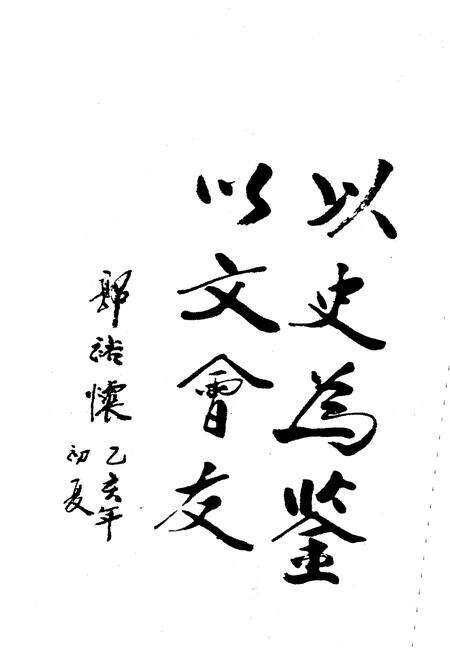 以史為鉴
以文會友
郭裕懷
乙亥年
初夏